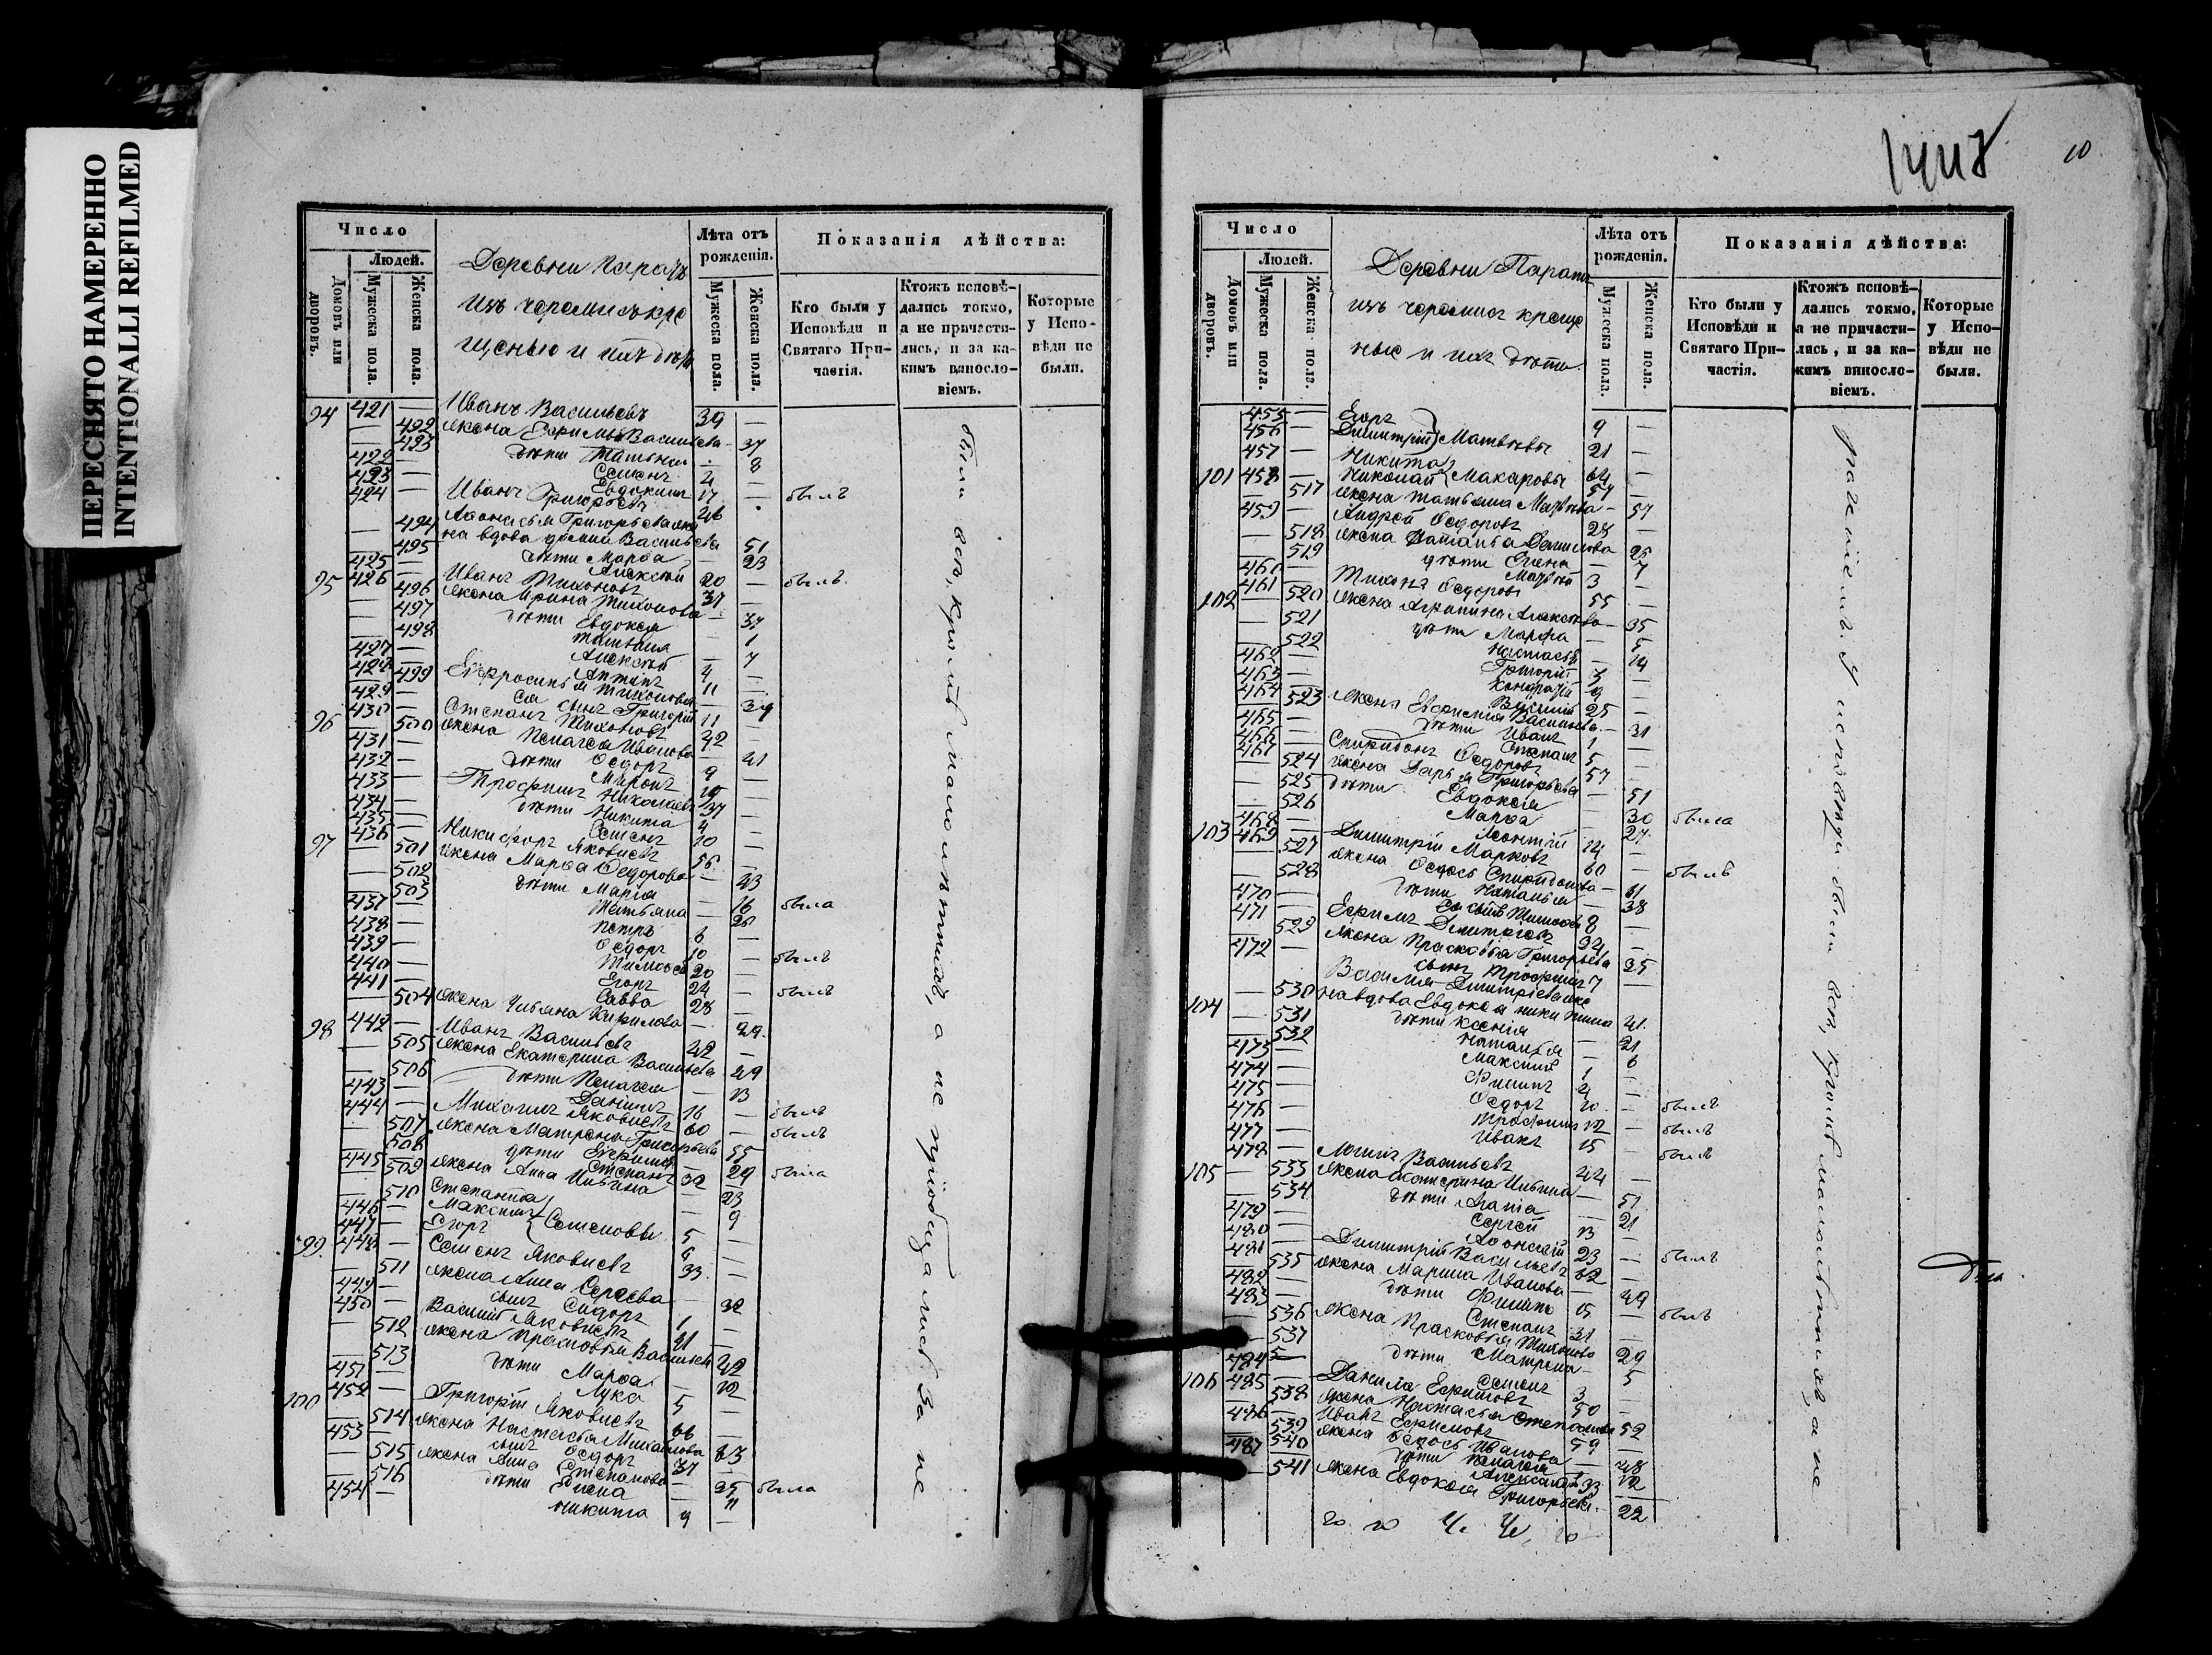 ПЕРЕСНЯТО НАМЕРЕННО
INTENTIONALLI REFILMED
Число
Людей.
Домовъ или дворовъ.
Мужеска пола.
Женска пола.
Деревни Параты
изъ черемисъ кре
щеные и ихъ дѣти
Лѣта отъ рожденія.
Мужеска пола.
Женска пола.
Показанія дѣйства:
Кто были у Исповѣди и Святаго Причастія.
Ктожъ исповѣдались токмо, а не причастились, и за какимъ винословіемъ.
Которые у Исповѣди не были.
94 421 — Иванъ Васильевъ 39 —
— 492 жена Ефимья Васильева — 37
— 493 дѣти Татьяна — 8
422 — Семенъ 4 —
423 — Евдокимъ 17 — былъ
424 — Иванъ Григорьевъ 46
Афонасья Григорьева же
— 494 на вдова Васильева 51
— 495 дѣти Марѳа — 23
425 — Алексѣй 20 — былъ.
95 426 — Иванъ Тихоновъ 37 —
— 496 жена Ирина Тихонова — 37
— 497 дѣти Евдокея — 1
— 498 Татьяна — 7
427 — Алексѣй 4 —
428 — Антипъ 11 —
— 499 Ефросинья Тихонова — 39
429 — ея сынъ Григорій 11 —
96 430 — Степанъ Тихоновъ 42 —
— 500 жена Пелагея Иванова — 41
431 — дѣти Ѳедоръ 9 —
432 — Миронъ —
433 — Трофимъ Николаевъ 37 —
434 — дѣти Никита 4 —
435 — Семенъ 10 —
97 436 — Никифоръ Яковлевъ 56 —
— 501 жена Марѳа Ѳедорова — 43
— 502 дѣти Марія — 16 была
— 503 Татьяна — 20
437 — Петръ 6 —
438 — Ѳедоръ 10 — былъ
439 — Тимоѳей 20 —
440 — Егоръ 24 — былъ
441 — Савва 28 —
— 504 жена Ульяна Кирилова — 29.
98 442 — Иванъ Васильевъ 42 —
— 505 жена Екатерина Васильева 49
— 506 дѣти Пелагея — 13
443 — Данилъ 16 — былъ
444 — Михаилъ Яковлевъ 60 — былъ
— 507 жена Матрена Григорьева 55
— 508 дѣти — 29 была
445 — Степанъ 32
— 509 жена Анна Ильина — 23
— 510 Степанида — 9
446 — Максимъ } Семеновы 5 —
447 — Егоръ 6 —
99. 448 — Семенъ Яковлевъ 33. —
— 511 жена Анна Сергеева — 32
449 — сынъ Сидоръ 1 —
450 — Василій Яковлевъ 41 —
— 512 жена Прасковья Васильева 42
— 513 дѣти Марѳа — 12
451 — Лука 5 —
100 452 — Григорій Яковлевъ 66 —
— 514 жена Настасья Михайлова 63
453 — сынъ Ѳедоръ 37 —
— 515 жена Анна Степанова — 25 была
— 516 дѣти Елена — 11
454 — Никита 9 —
были всѣ, кромѣ малолѣтнихъ, а не пріобщались за не
10
Число
Людей.
Домовъ или дворовъ.
Мужеска пола.
Женска пола.
Деревни Параты
изъ черемисъ креще
ные и ихъ дѣти
Лѣта отъ рожденія.
Мужеска пола.
Женска пола.
Показанія дѣйства:
Кто были у Исповѣди и Святаго Причастія.
Ктожъ исповѣдались токмо, а не причастились, и за какимъ винословіемъ.
Которые у Исповѣди не были.
455 — Егоръ 9 —
456 — Димитрій } Матвѣевы 21 —
457 — Никита 64 —
101 458 — Николай } Макаровы 54 —
— 517 жена Татьяна Матвѣева — 57
459 — Андрей Ѳедоровъ 28 —
— 518 жена Наталья Данилова 26
— 519 дѣти Елена — 7
460 — Матвѣй 3 —
102 461 — Тихонъ Ѳедоровъ 55 —
— 520 жена Агрипина Алексѣева — 35
— 521 дѣти Марфа — 5
— 522 Настасья — 14
462 — Григорій 3 —
463 — Кондратій 9 —
464 — Василій 25 —
— 523 жена Ефимия Васильева — 31
465 — дѣти Иванъ 1 —
466 — Степанъ 5 —
467 — Спиридонъ Ѳедоровъ 57 —
— 524 жена Дарья Григорьева 51
— 525 дѣти Евдокея — 30 была
— 526 Марѳа — 27.
468 — Леонтій 14 —
103 469 — Димитрій Марковъ 60 — былъ
— 527 жена Ѳедось Спиридонова — 61
— 528 дѣти Наталья — 38
470 — ея сынъ Тимоѳей 8 —
471 — Ефимъ Димитріевъ 34 —
— 529 жена Прасковья Григорьева 35
472 — сынъ Трофимъ 7 —
Василья Димитріева же
104 — 530 на вдова Евдокея Никитина 41.
— 531 дѣти Ксенія — 21
— 532 Наталья — 6
473 — Максимъ 1 —
474 — Филипъ 4 —
475 — Ѳедоръ 10 — былъ
476 — Трофимъ 12 — былъ
477 — Иванъ 15 — былъ
105 478 — Логинъ Васильевъ 44 —
— 533 жена Екатерина Ильина — 51
— 534 дѣти Агапа — 21
479 — Сергей 13 —
480 — Афонасій 23 — былъ
481 — Димитрій Васильевъ 62 —
— 535 жена Марина Иванова — 49
482 — дѣти Филипъ 15 — былъ
483 — Степанъ 31 —
— 536 жена Прасковья Тихонова 29
— 537 дѣти Матрена — 5
484 — Семенъ 3 —
106 485 — Данила Ефимовъ 50 —
— 538 жена Настасья Степанова 52
486 — Иванъ Ефимовъ 59 —
— 539 жена Ѳедось Иванова — 48
— 540 дѣти Пелагея — 12
487 — Александръ 23
— 541 жена Евдокея Григорьева. 22
раченіемъ. У исповѣди были всѣ, кромѣ малолѣтнихъ, а не